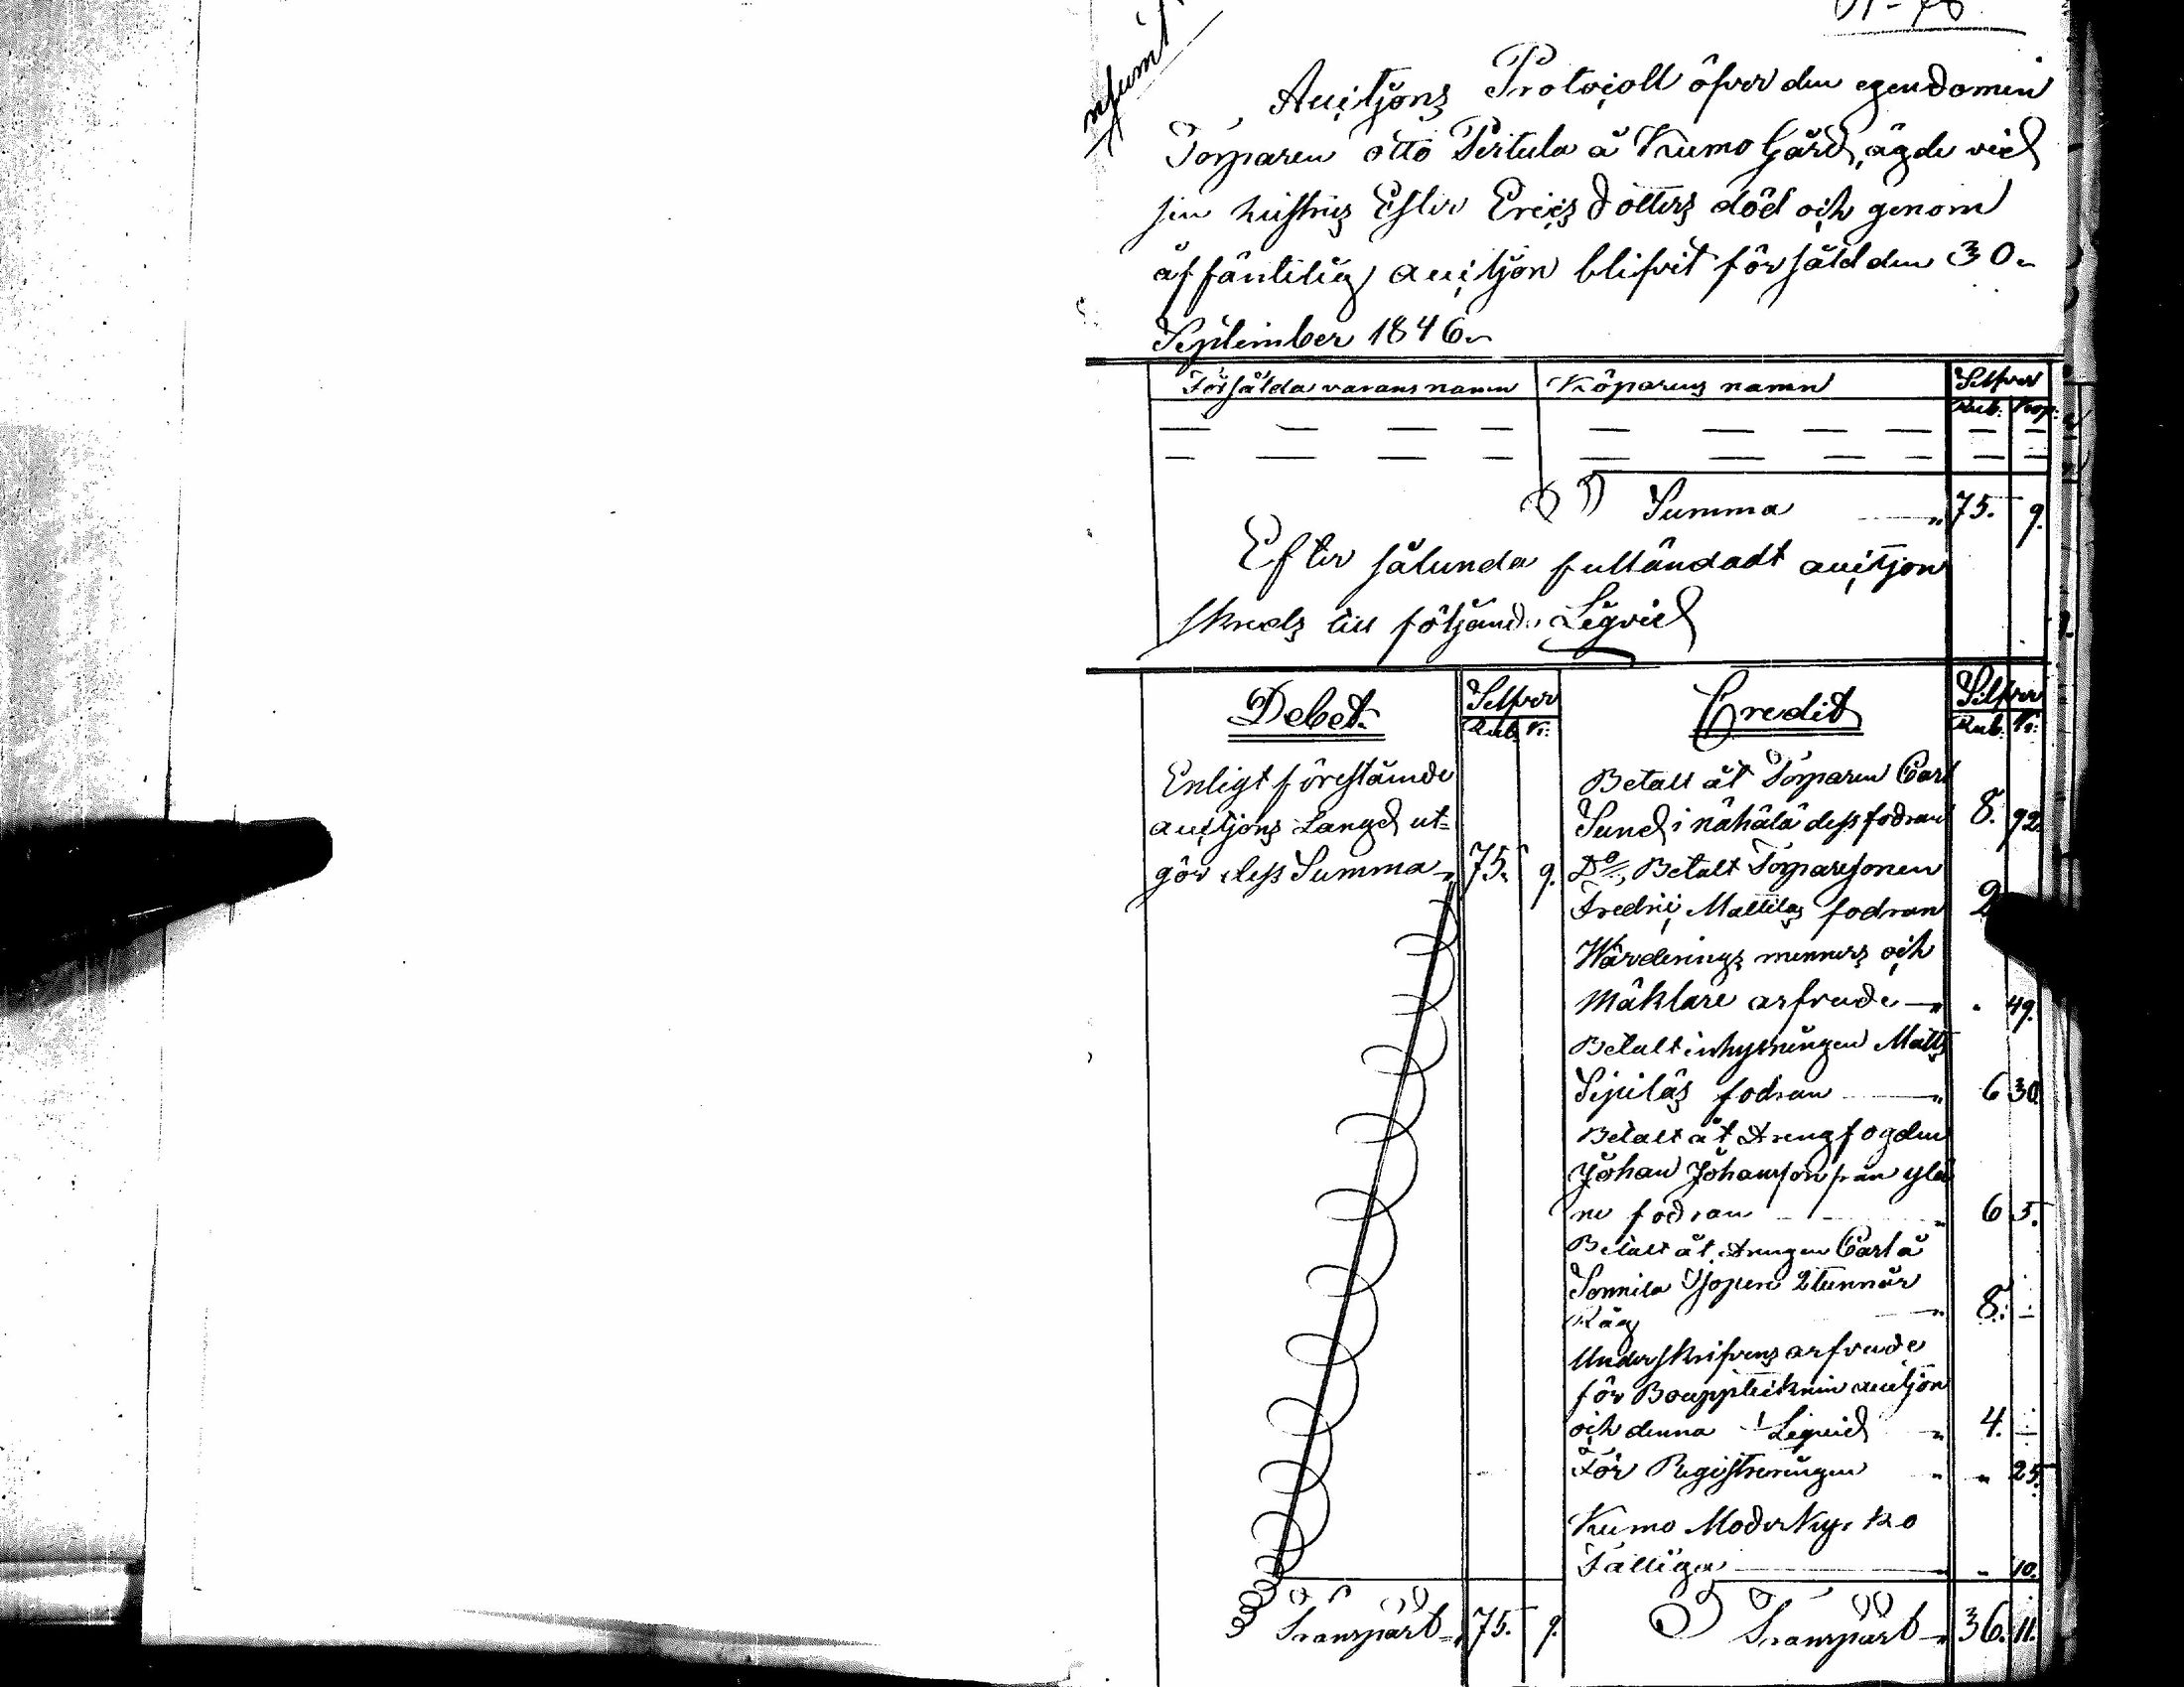 Auctjons Protocoll öfver den egendomen
Torparen otto Pertula a Kumo Gård, ägde vid
sin hustrus Ester Ericsdotters död och genom
åffäntelig auctjon blifvit försåld den 30
September 1846
Försålda varans namn Köparens namn Silfver
Rub. Kop.
Summa 75. 9.
Efter sålunda fulländadt auctjon
skreds till följande Liqvid
Debet Silfver Credit Silfver
Rub. K: Rub. K:
Enligt förestäinde Betalt åt Torparen Carl
auctjons Langd ut- Sund i nähälä dess fodran 8. 92.
gör dess Summa 75. 9. Do Betalt Torparesonen
Fredric Mattilas fodran 2
Wärderings menners och
Mäklare arfvode 49.
Betalt inhysningen Matts
Sipiläs fodran 6 30.
Betalt åt drengfogden
Johan Johansson från ylä
ne fodran 6 5.
Betalt åt drengen Carl å
Sonnila 2 tunnår
Råg 8.
Underskrifvens arfvode
för Bouppteiknin auctjon
och denna Liqvid 4.
För Registreringen 25.
Kumo Moderkyrko
Fattiga 10.
Transpårt 75. 9. Transpårt 36. 11.